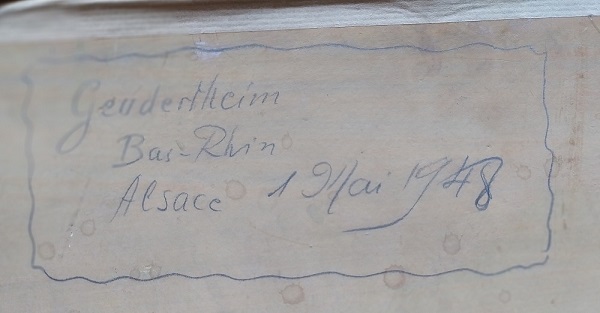 Geudertheim
Bas-Rhin
Alsace 1 Mai 1948